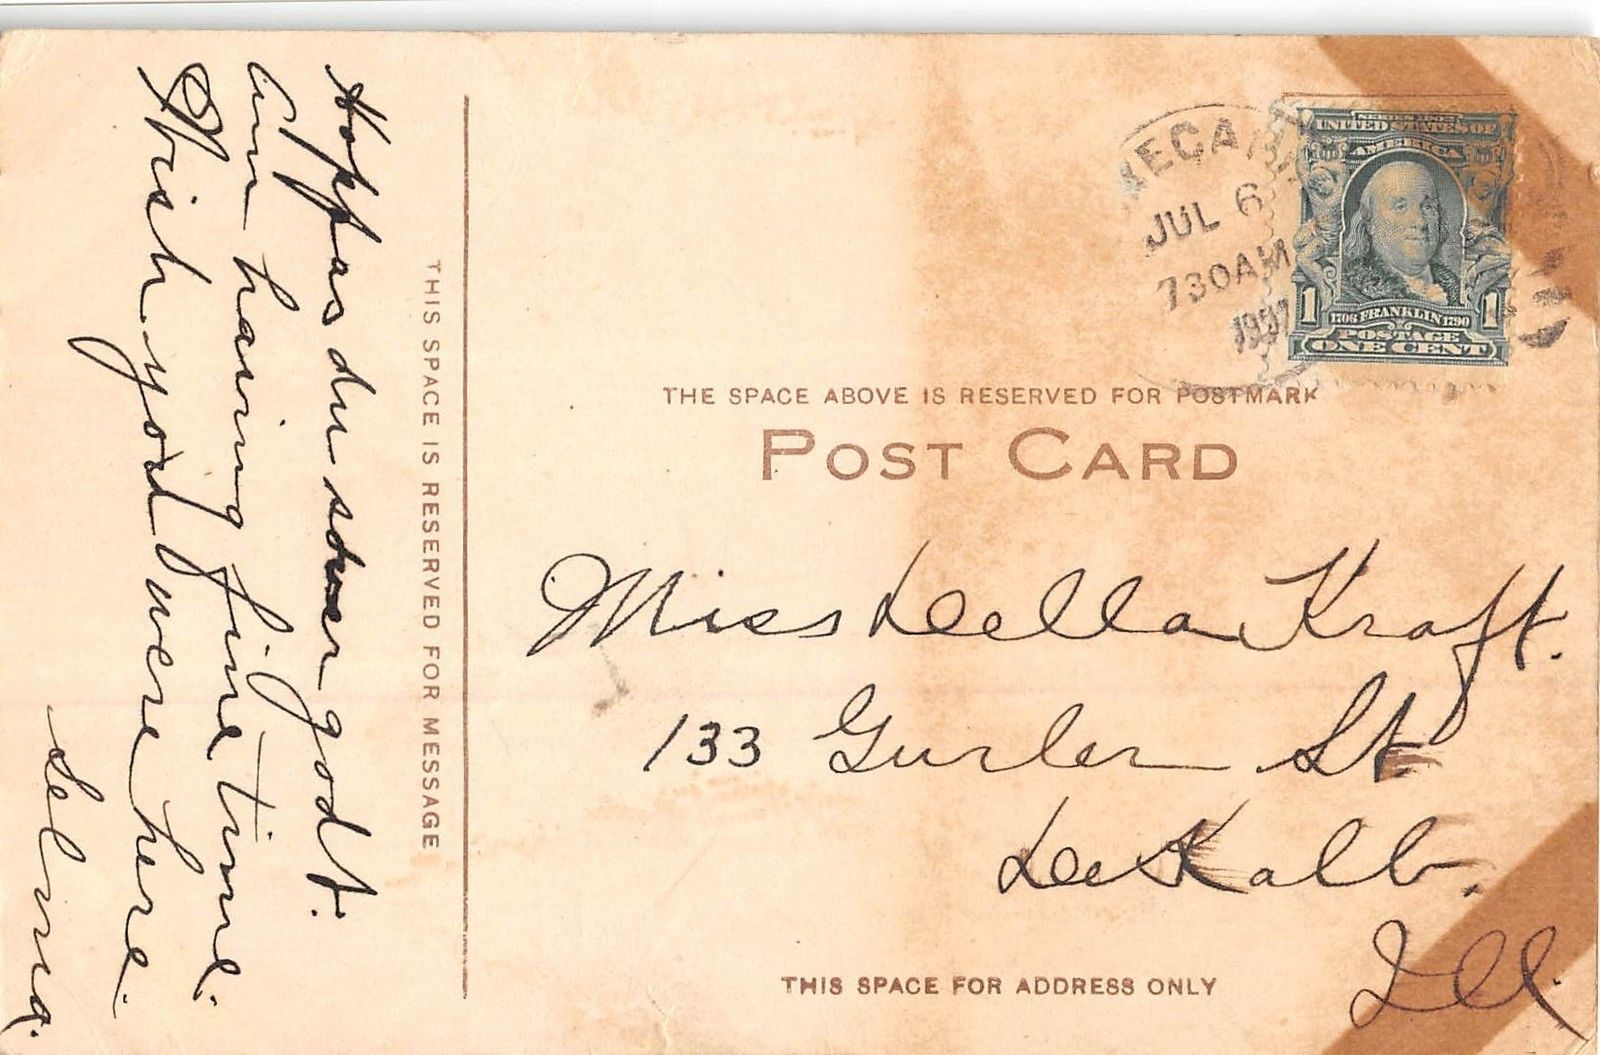 Hoppas du sover godt.
Am having fine time.
Wish you were here.
Selma.
THIS SPACE IS RESERVED FOR MESSAGE
JUL 6
730AM
1907
SERIES 1902
UNITED STATES OF
AMERICA
1 1706 FRANKLIN 1790 1
POSTAGE
ONE CENT
THE SPACE ABOVE IS RESERVED FOR POSTMARK
POST CARD
Miss Della Kraft.
133 Gurler St
DeKalb.
Ill.
THIS SPACE FOR ADDRESS ONLY